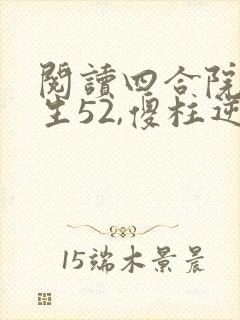 閱讀四合院
生52,傻柱逆
15端木景晨